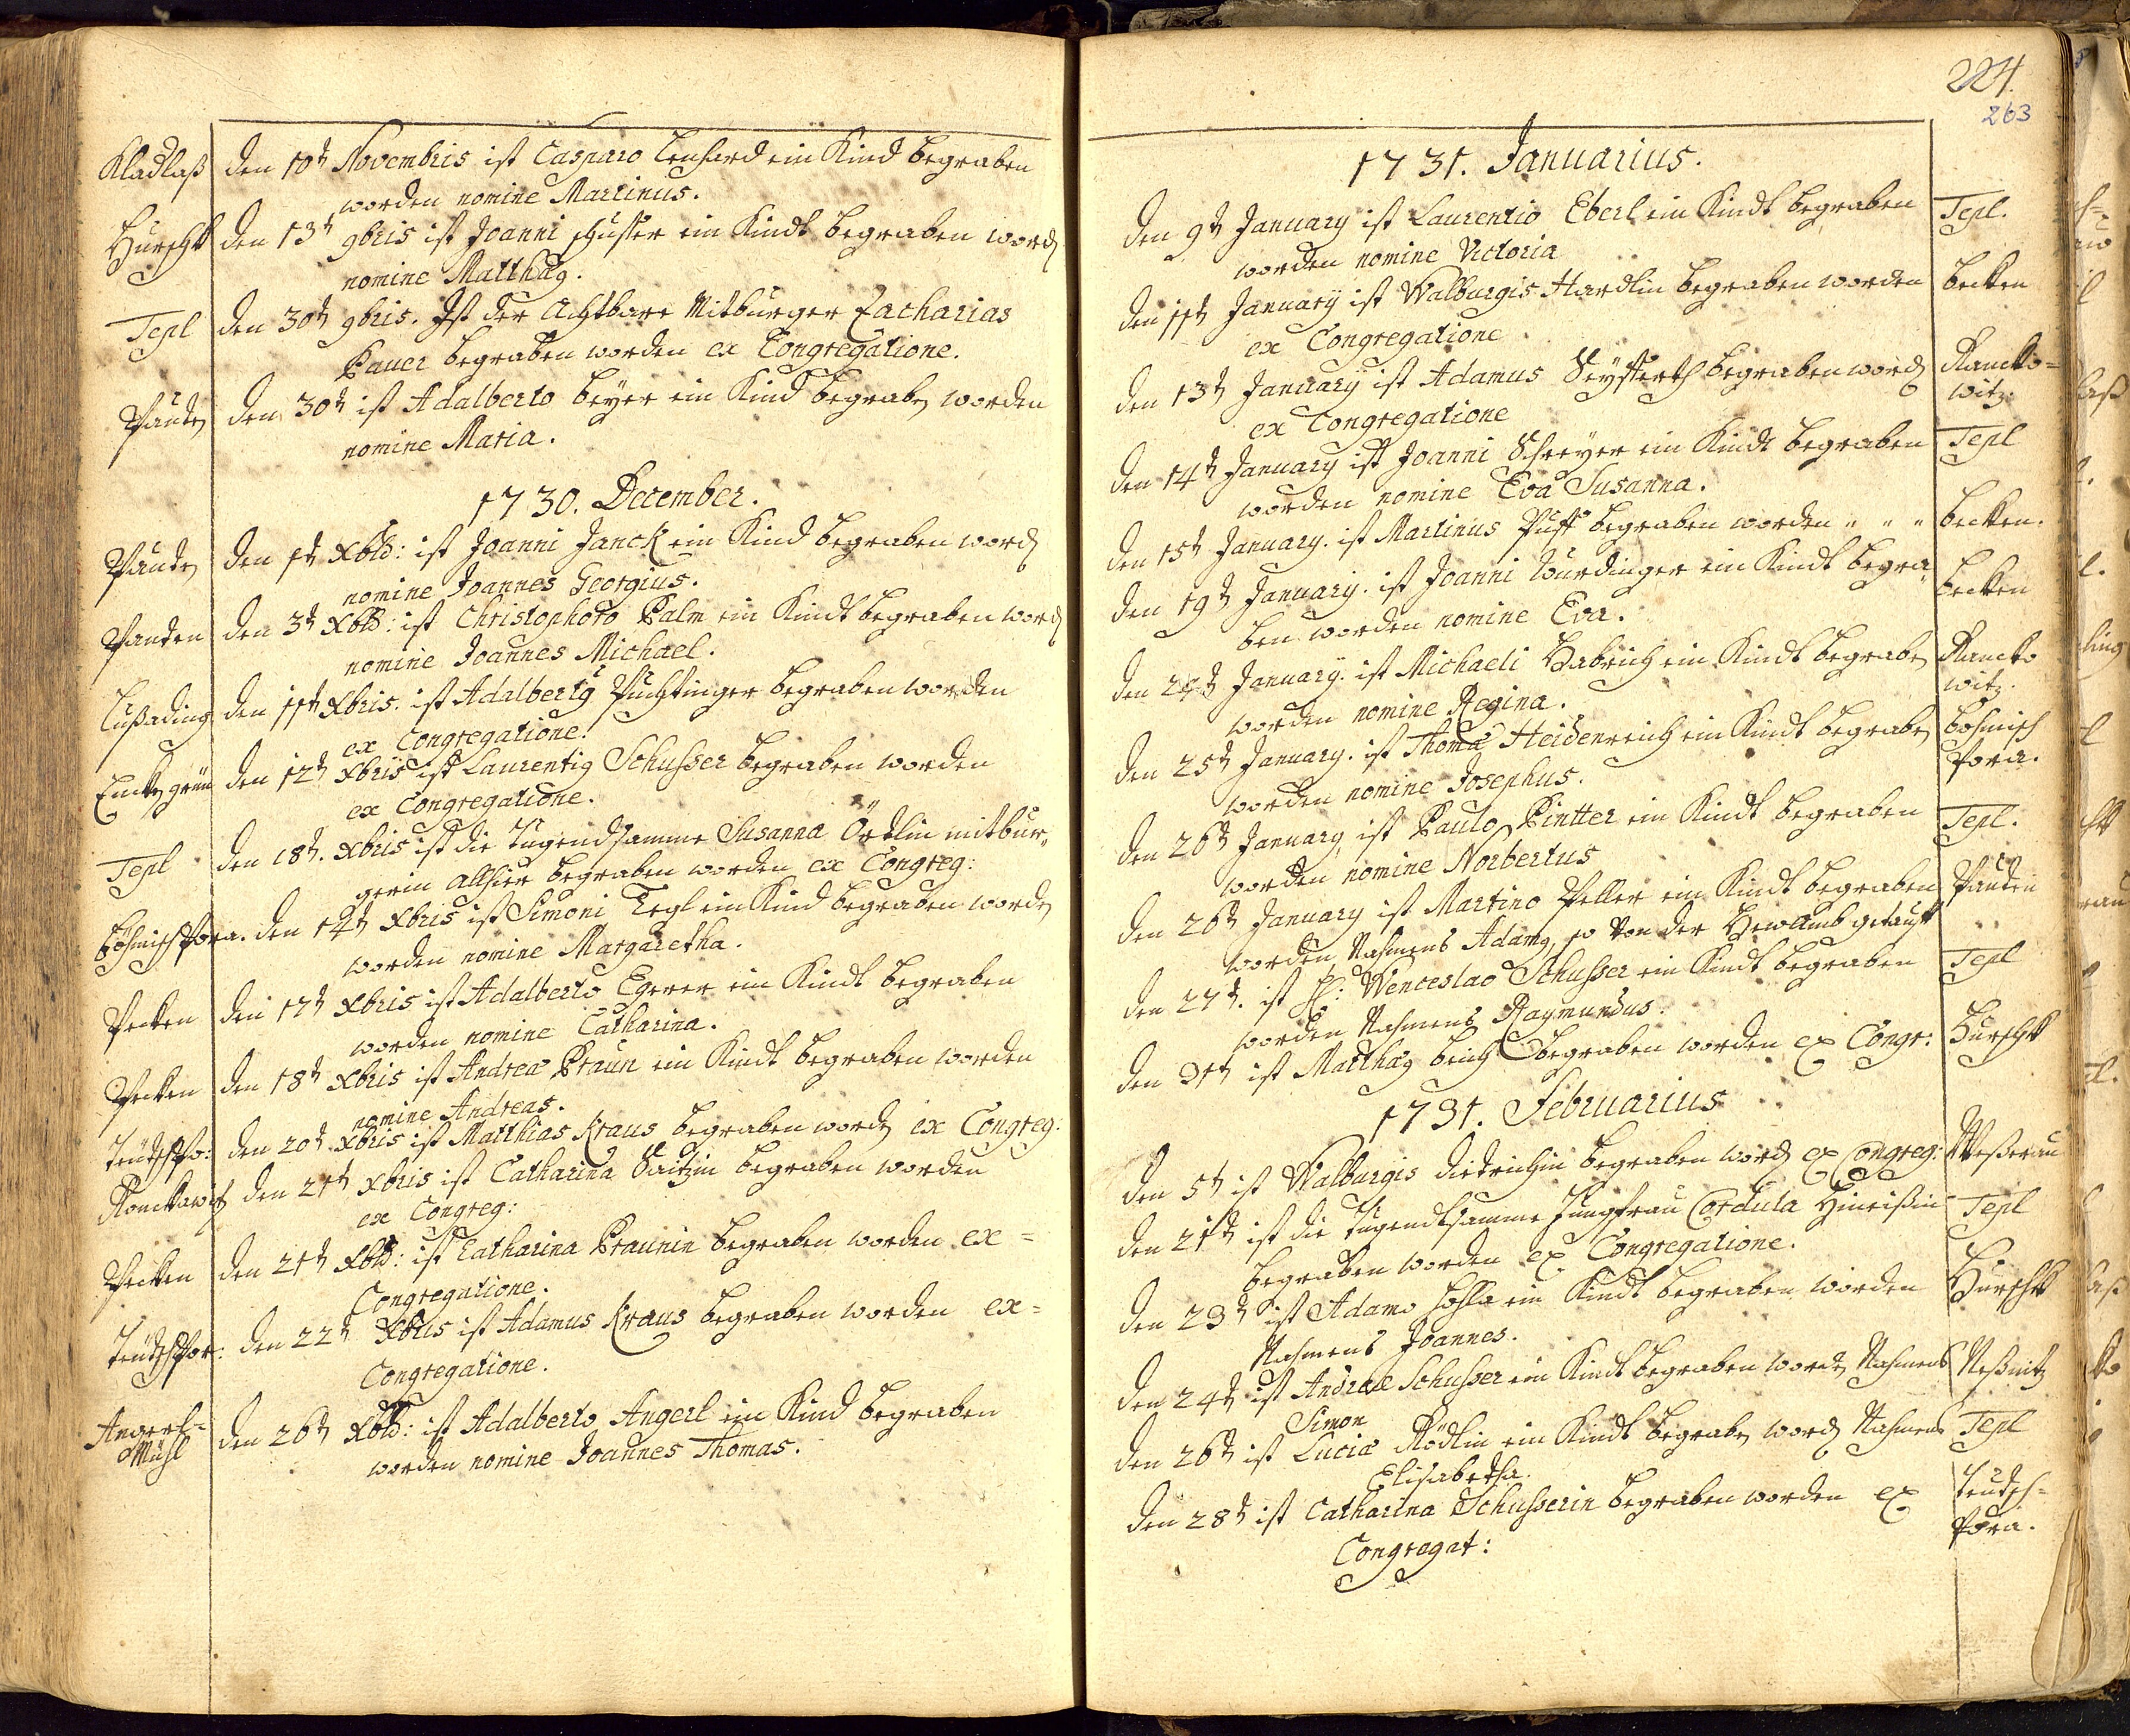 Kladlaß den 10t Novembris ist Casparo Lenhard ein Kind begraben
worden nomine Martinus.
Hurschk den 13t 9bris ist Joanni schuster ein Kindt begraben word
nomine Matthæg.
Tepl den 30t 9bris. Ist der Achtbare Mitburger Zacharias
Pauer begraben worden ex Congregatione.
Pauten den 30t ist Adalberto beyer ein Kind begraben worden
nomine Maria.
1730. December.
Pauten den 1t Xbld: ist Joanni Janck ein Kind begraben word
nomine Joannes Georgius.
Pauten den 3t Xbld: ist Christophoro Palm ein Kindt begraben word
nomine Joannes Michael.
Lußading den 11t Xbris. ist Adalbertg Puchtinger begraben worden
ex Congregatione.
Enckengrün den 12t Xbris ist Laurentig Schusser begraben worden
ex Congregatione.
Tepl den 18t. Xbris ist die Tugendsamme Susanna Ördlin mitbur„
gerin allhier begraben worden ex Congreg:
böhmisch Pora. den 14t Xbris ist Simoni Tegl ein Kind begraben worden
worden nomine Margaretha.
Pecken den 17t Xbris ist Adalberto Egerer ein Kindt begraben
worden nomine Catharina.
Pecken den 18t Xbris ist Andrea Praun ein Kindt begraben worden
nomine Andreas.
Teutschpo: den 20t Xbris ist Matthias Kraus begraben worden ex Congreg:
Ranckowitz den 21t Xbris ist Catharina Saitzin begraben worden
ex Congreg:
Pecken den 21t Xbld: ist Catharina Praunin begraben worden ex=
Congregatione.
Teutschpor: den 22t Xbris ist Adamus Kraus begraben worden ex=
Congregatione.
Angerl= den 26t Xbld: ist Adalberto Angerl ein Kind begraben
Mühl worden nomine Joannes Thomas.
224.
263
1731. Januarius.
den 9t January ist Laurentio Eberl ein Kindt begraben Tepl.
worden nomine Victoria
den 11t January ist Walburgis Hardlin begraben worden becken
ex Congregatione
den 13t January ist Adamus Seysterth begraben word Rancko=
ex Congregatione witz.
den 14t January ist Joanni Schreyer ein Kindt begraben Tepl
worden nomine Eva Susanna.
den 15t January. ist Martinus Puff begraben worden „ „ „ becken.
den 19t January. ist Joanni Wurdinger ein Kindt begra„ becken
ben worden nomine Eva.
den 24t January. ist Michaeli Habrich ein Kindt begraben Rancko
worden nomine Regina. witz.
den 25t January. ist Thomæ Heidenreich ein Kindt begraben bohmisch
worden nomine Josephus. Pora.
den 26t January ist Paulo Pintter ein Kindt begraben Tepl.
worden nomine Norbertus
den 26t January ist Martino Peller ein Kindt begraben Pauten
worden Nahmens Adamg, so von der Hewamb getaufft
den 27t. ist H: Wenceslao Schusser ein Kindt begraben Tepl
worden Nahmens Raymundus.
den 31t ist Matthæg beich begraben worden ex Congr: Hurschk
1731. Februarius
den 5t ist Walburgis Dietrichin begraben word ex Congreg: Weßerau
den 21t ist die Tugendtsamme Jungfrau Cordula Hinrißin Tepl
begraben worden ex Congregatione.
den 23t ist Adamo ein Kindt begraben worden Hurschk
Nahmens Joannes.
den 24t ist Andreæ Schusser ein Kindt begraben worden Nahmens Neßnitz
Simon
den 26t ist Luciæ Rödlin ein Kindt begraben word Nahmens Tepl
Elisabetha.
den 28t ist Catharina Schusserin begraben worden ex Teutsch=
Congregat: Pora.